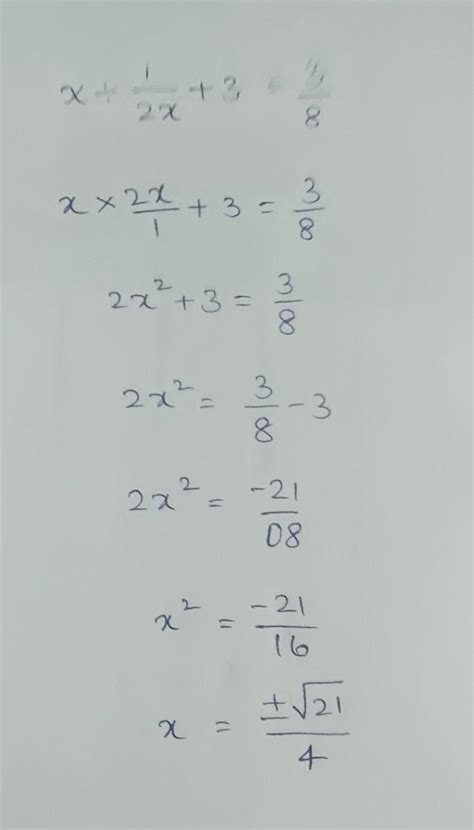 x ÷ 1/2x + 3 = 3/8
x × 2x/1 + 3 = 3/8
2x² + 3 = 3/8
2x² = 3/8 - 3
2x² = -21/08
x² = -21/16
x = ±√21/4